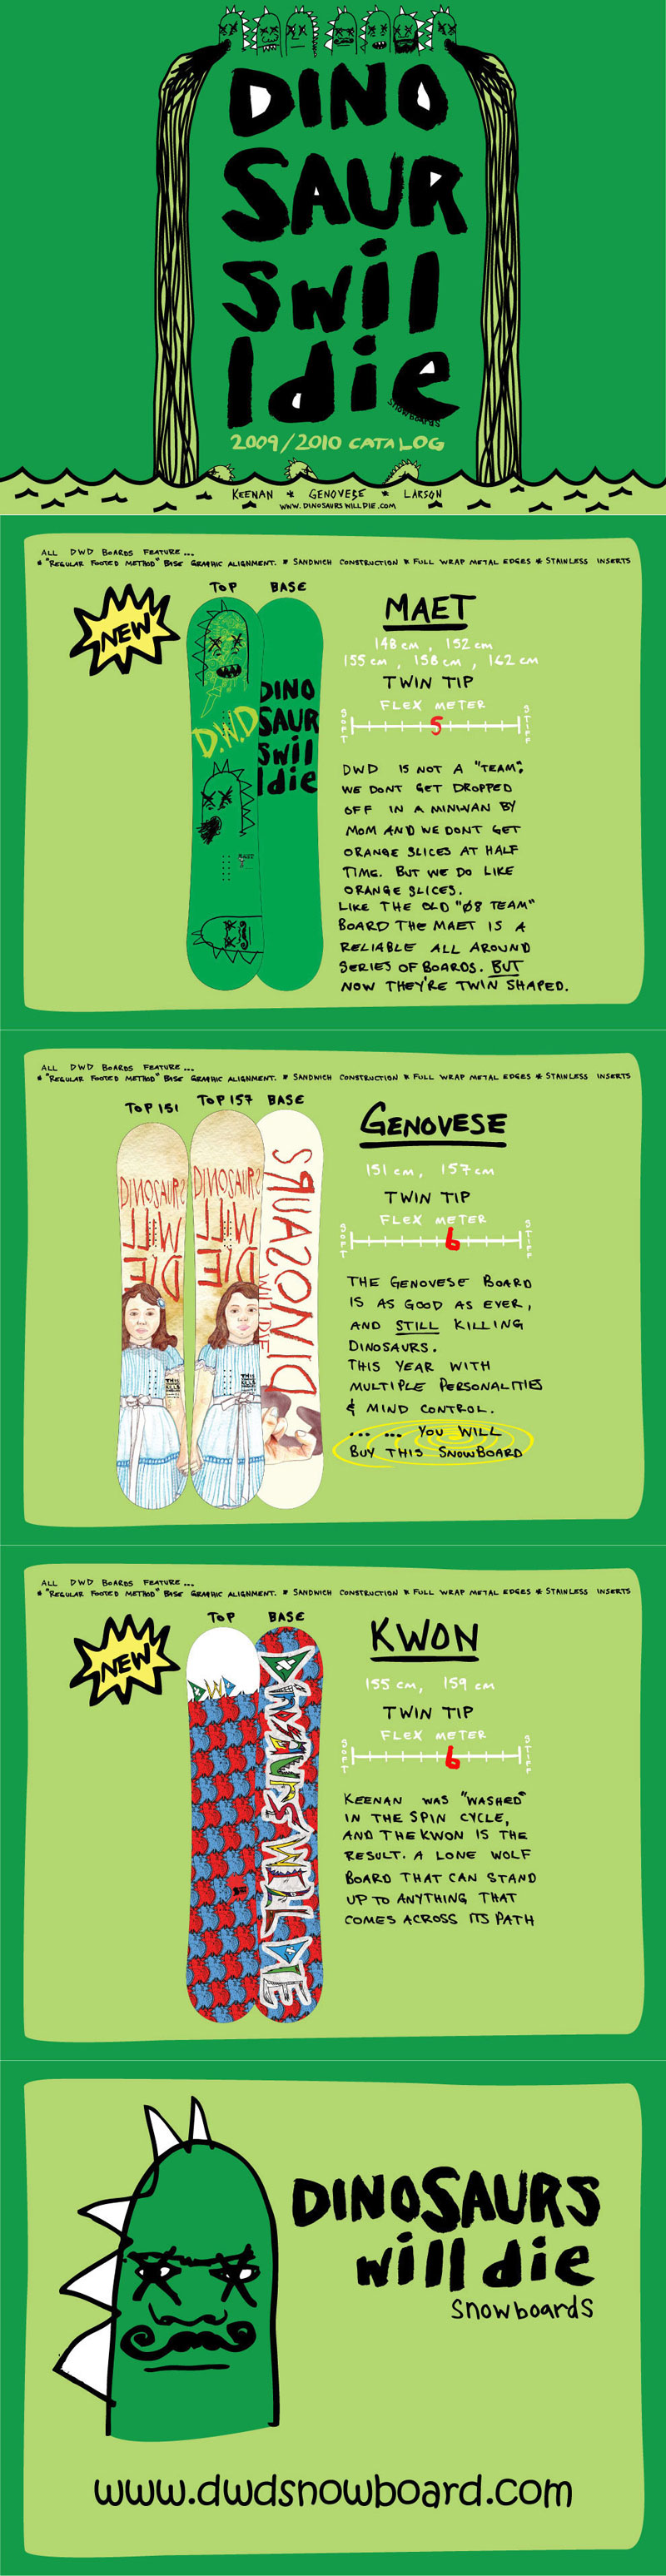 DINO
SAUR
Swil
ldie
SNOWBOARDS
2009/2010 CATALOG
KEENAN * GENOVESE * LARSON
WWW.DINOSAURSWILLDIE.COM
ALL DWD BOARDS FEATURE...
* "REGULAR FOOTED METHOD" BASE GRAPHIC ALIGNMENT. * SANDWICH CONSTRUCTION * FULL WRAP METAL EDGES * STAINLESS INSERTS
TOP BASE
NEW
D.W.D
MAET
DINO
SAUR
Swil
ldie
MAET
148 cm, 152 cm
155 cm, 158 cm, 162 cm
TWIN TIP
FLEX METER
SOFT 5 STIFF
DWD IS NOT A "TEAM",
WE DONT GET DROPPED
OFF IN A MINIVAN BY
MOM AND WE DONT GET
ORANGE SLICES AT HALF
TIME. BUT WE DO LIKE
ORANGE SLICES.
LIKE THE OLD "Ø8 TEAM"
BOARD THE MAET IS A
RELIABLE ALL AROUND
SERIES OF BOARDS. BUT
NOW THEY'RE TWIN SHAPED.
ALL DWD BOARDS FEATURE...
* "REGULAR FOOTED METHOD" BASE GRAPHIC ALIGNMENT. * SANDWICH CONSTRUCTION * FULL WRAP METAL EDGES * STAINLESS INSERTS
TOP 151 TOP 157 BASE
DINOSAURS
WILL
DIE
DINOSAURS
WILL
DIE
DINOSAURS
WILL DIE
GENOVESE
151 cm, 157 cm
TWIN TIP
FLEX METER
SOFT 6 STIFF
THE GENOVESE BOARD
IS AS GOOD AS EVER,
AND STILL KILLING
DINOSAURS.
THIS YEAR WITH
MULTIPLE PERSONALITIES
& MIND CONTROL.
... ... YOU WILL
BUY THIS SNOWBOARD
ALL DWD BOARDS FEATURE...
* "REGULAR FOOTED METHOD" BASE GRAPHIC ALIGNMENT. * SANDWICH CONSTRUCTION * FULL WRAP METAL EDGES * STAINLESS INSERTS
TOP BASE
NEW
DWD
DINOSAURS WILL DIE
KWON
155 cm, 159 cm
TWIN TIP
FLEX METER
SOFT 6 STIFF
KEENAN WAS "WASHED"
IN THE SPIN CYCLE,
AND THE KWON IS THE
RESULT. A LONE WOLF
BOARD THAT CAN STAND
UP TO ANYTHING THAT
COMES ACROSS ITS PATH
DINOSAURS
will die
Snowboards
www.dwdsnowboard.com